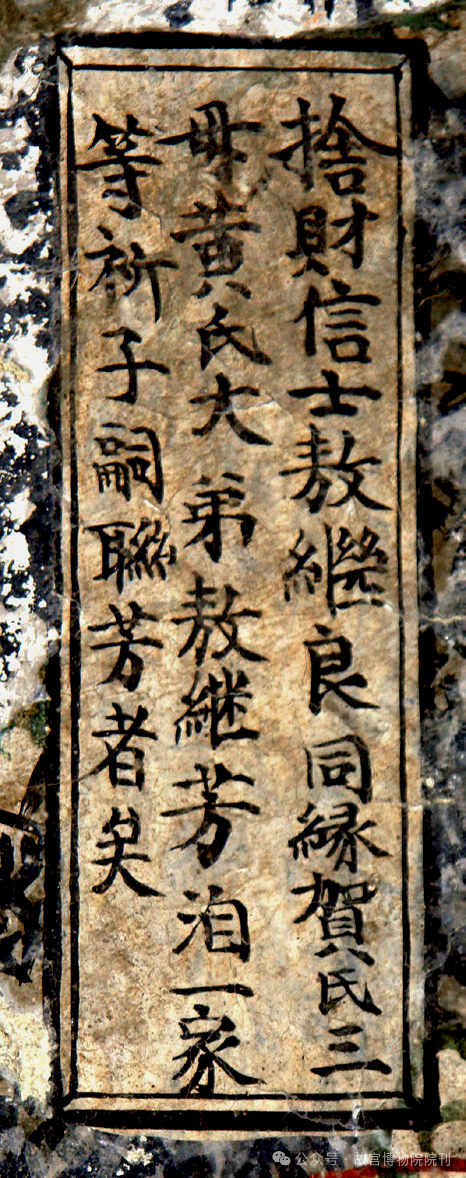 捨財信士敖繼良同縁賀氏三
母黄氏大弟敖継芳洎一家
等祈子嗣聯芳者矣
公众号 · 故宫博物院院刊